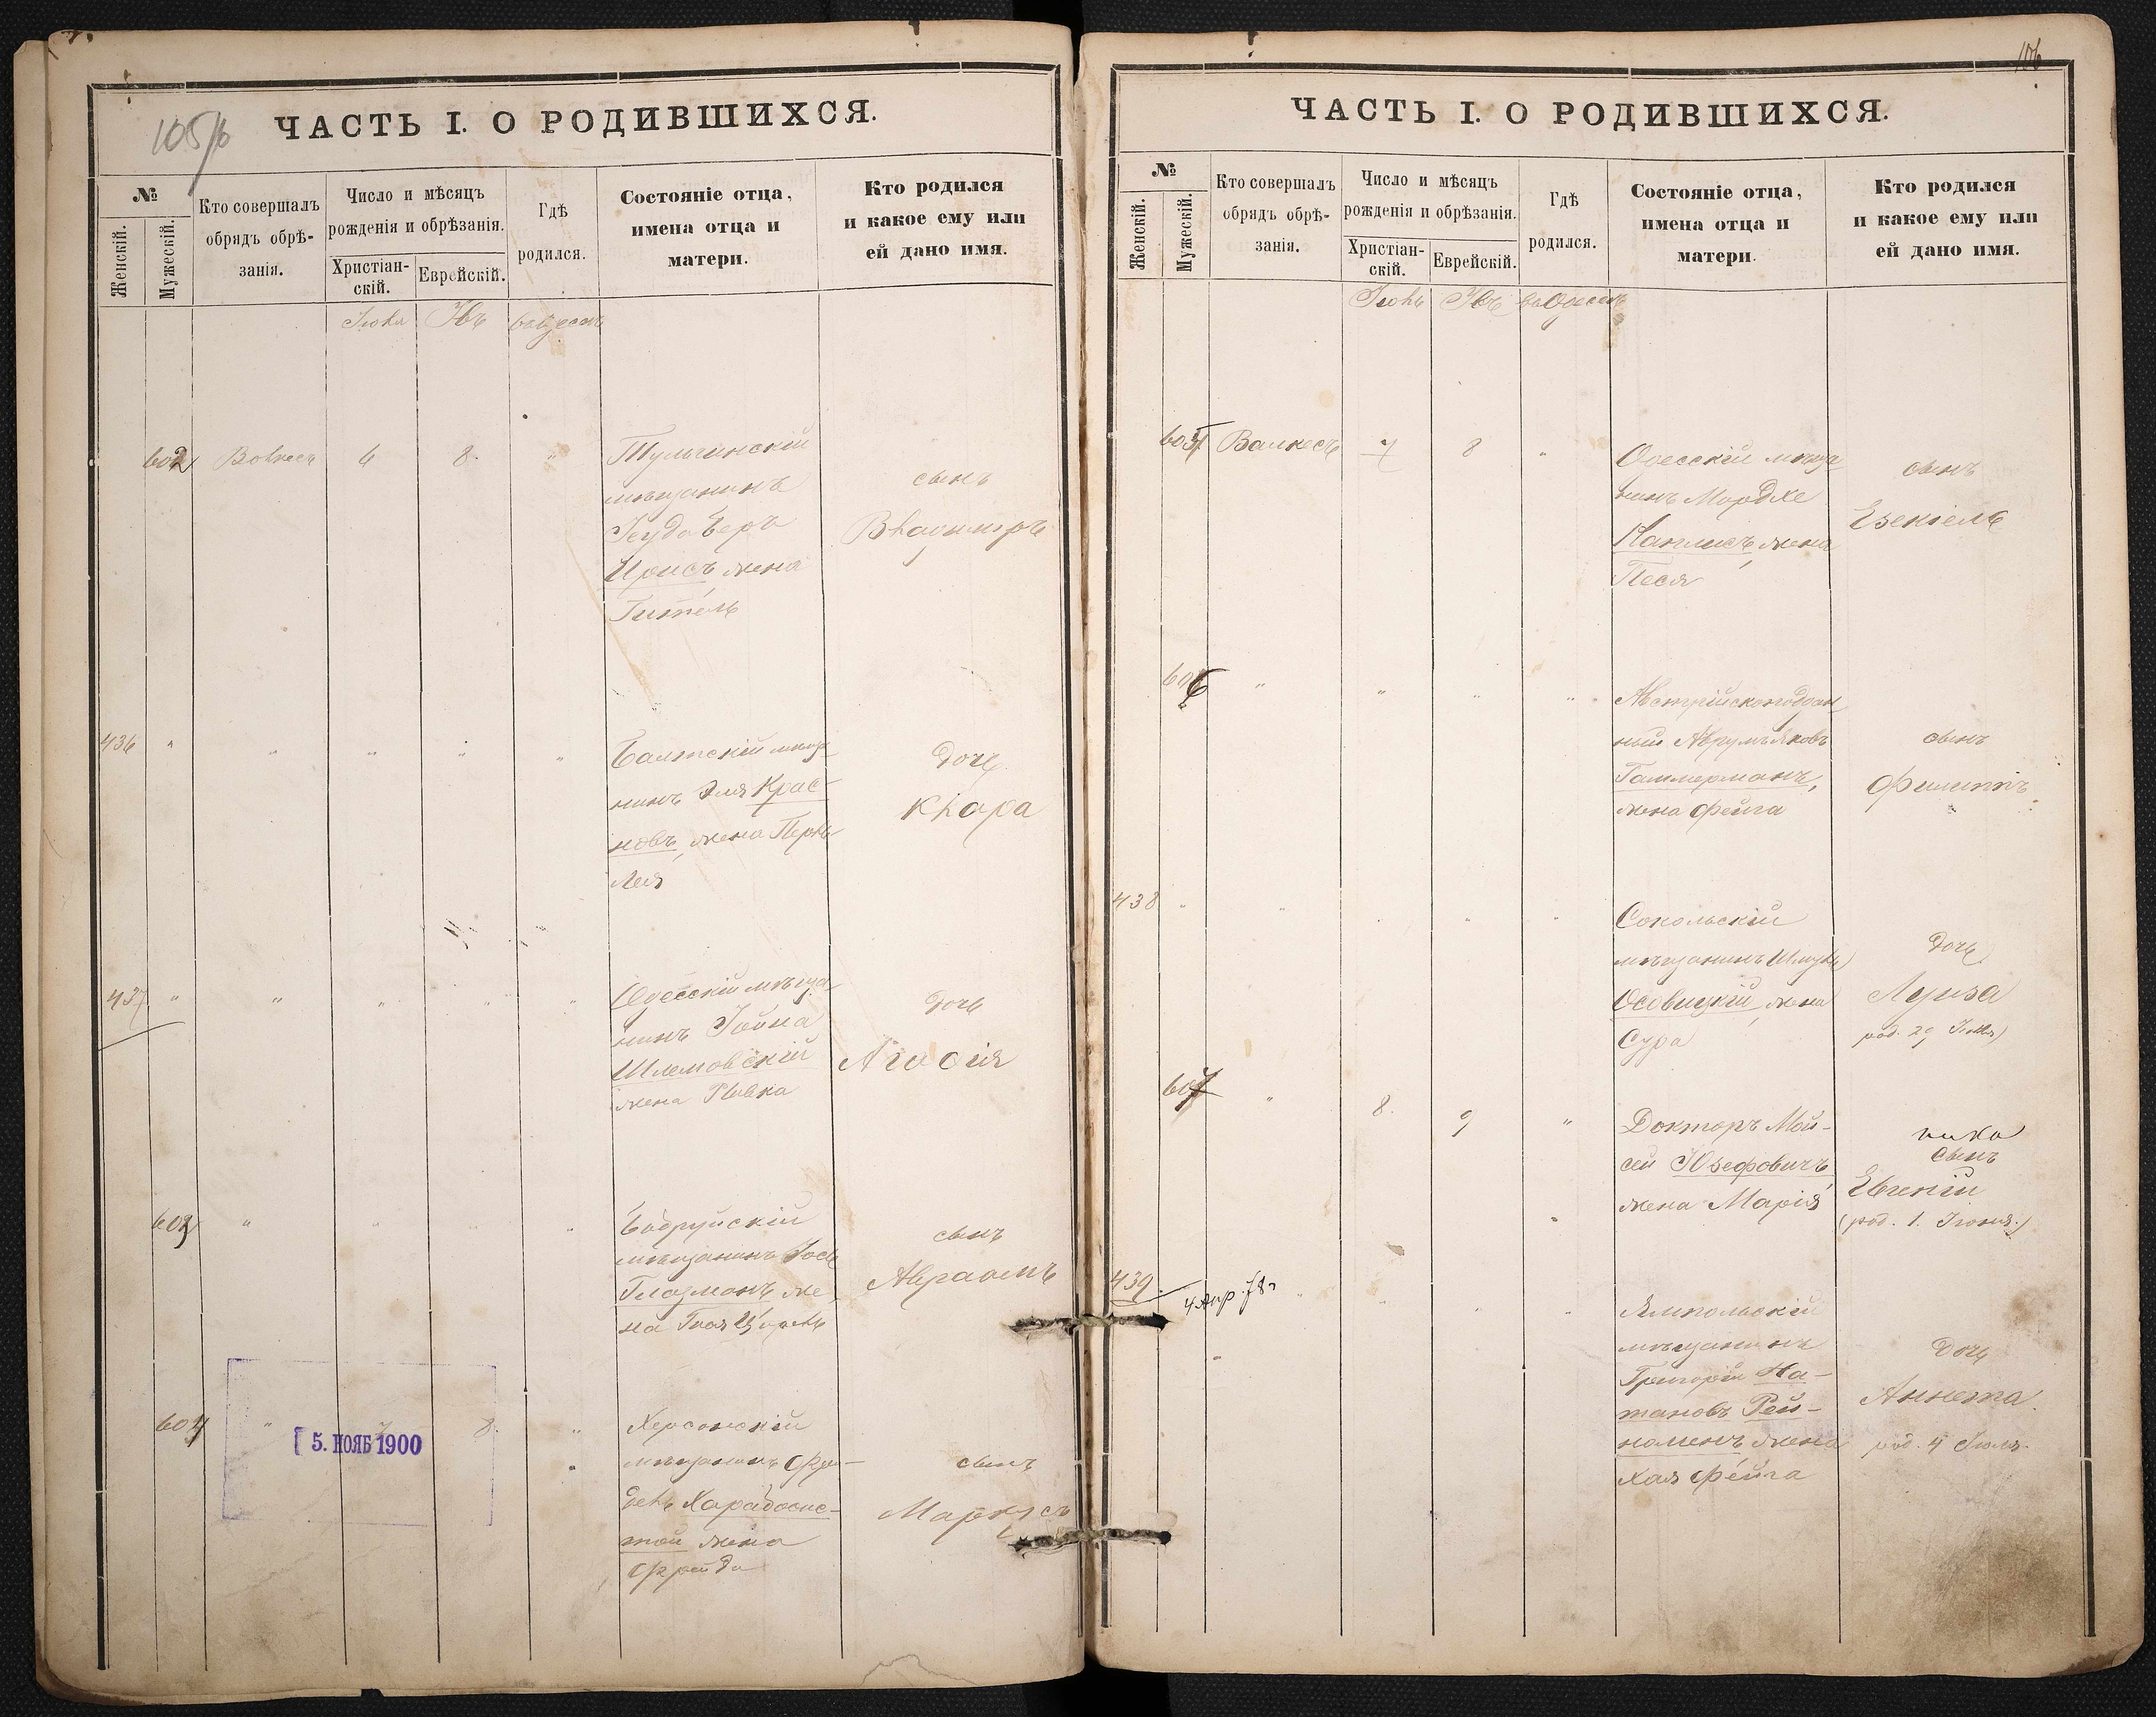 105/б
ЧАСТЬ I. О РОДИВШИХСЯ.
№
Женскій.
Мужескій.
Кто совершалъ
обрядъ обрѣ-
занія.
Число и мѣсяцъ
рожденія и обрѣзанія.
Христіан-
скій.
Еврейскій.
Гдѣ
родился.
Состояніе отца,
имена отца и
матери.
Кто родился
и какое ему или
ей дано имя.
602
6
8.
"
Тульчинскій
мѣщанинъ
Іеуда Беръ
жена
Гитель
сынъ
Владиміръ
436
"
"
"
"
"
Балтскій мѣща
нинъ Эля Крас-
новъ, жена Перль
Лея
дочь
Клара
437
"
"
"
"
"
Одесскій мѣща
нинъ Іойна
Шлемовскій
жена Ривка
дочь
603
"
"
"
"
Бобруйскій
мѣщанинъ Іось
Глазманъ же
на
сынъ
Авраамъ
604
"
7
8.
"
5. НОЯБ 1900
Херсонскій
мѣщанинъ
жена
Фрейда
сынъ
Маркусъ
106
ЧАСТЬ I. О РОДИВШИХСЯ.
№
Женскій.
Мужескій.
Кто совершалъ
обрядъ обрѣ-
занія.
Число и мѣсяцъ
рожденія и обрѣзанія.
Христіан-
скій.
Еврейскій.
Гдѣ
родился.
Состояніе отца,
имена отца и
матери.
Кто родился
и какое ему или
ей дано имя.
въ Одессѣ
605
7
8
"
Одесскій мѣща
нинъ Мордхе
Каплисъ, жена
Песя
сынъ
Езекіель
606
"
"
"
"
Австрійскоподдан
ный Аврумъ Яковъ
Гаммерманъ,
жена Фейга
сынъ
Филиппъ
438
"
"
"
"
"
Сокольскій
мѣщанинъ Шмуль
Осовицкій, жена
Сура
дочь
Луиза
род. 29
607
"
8.
9
"
Докторъ Мой-
сей Юзефовичъ
жена Марія
сынъ
Евгеній
(род. 1. Іюня.)
439
4 апр. 78 г
"
"
"
"
Ямпольскій
мѣщанинъ
Григорій На-
тановъ Рей-
жена
Хая Фейга
дочь
Аннета.
род. 4 Іюля.